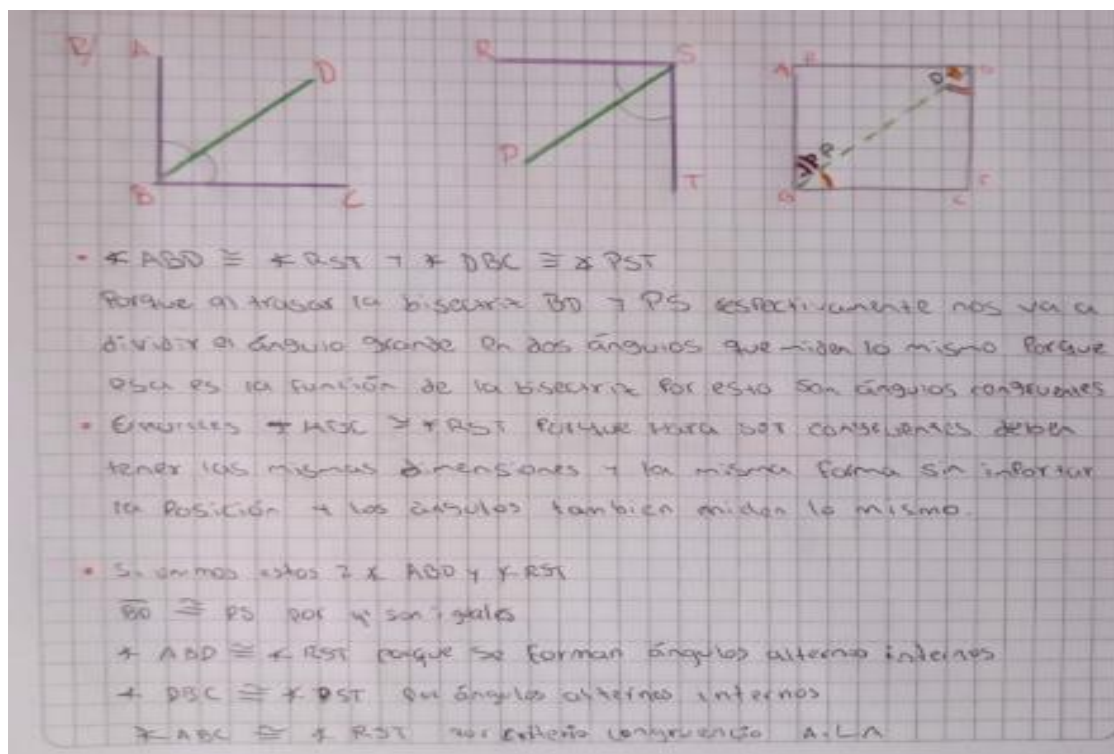 R/ A D R S A R D S
B C P T B P C T
• ∡ ABD ≅ ∡ RST y ∡ DBC ≅ ∡ PST
Porque al trasar la bisectriz BD y PS respectivamente nos va a
dividir el ángulo grande en dos ángulos que miden lo mismo Porque
esa es la función de la bisectriz Por esto son ángulos congruentes
• Entonces ∡ ≅ ∡ RST Porque para ser deben
tener las mismas dimensiones y la misma forma sin importar
la Posición y los ángulos tambien miden lo mismo.
• Si unimos estos 2 ∡ ABD y ∡ RST
BD ≅ PS por q' son iguales
∡ ABD ≅ ∡ RST porque se forman ángulos alterno internos
∡ DBC ≅ ∡ PST ángulos alternos internos
∡ ABC ≅ ∡ RST por criterio congruencia A.L.A